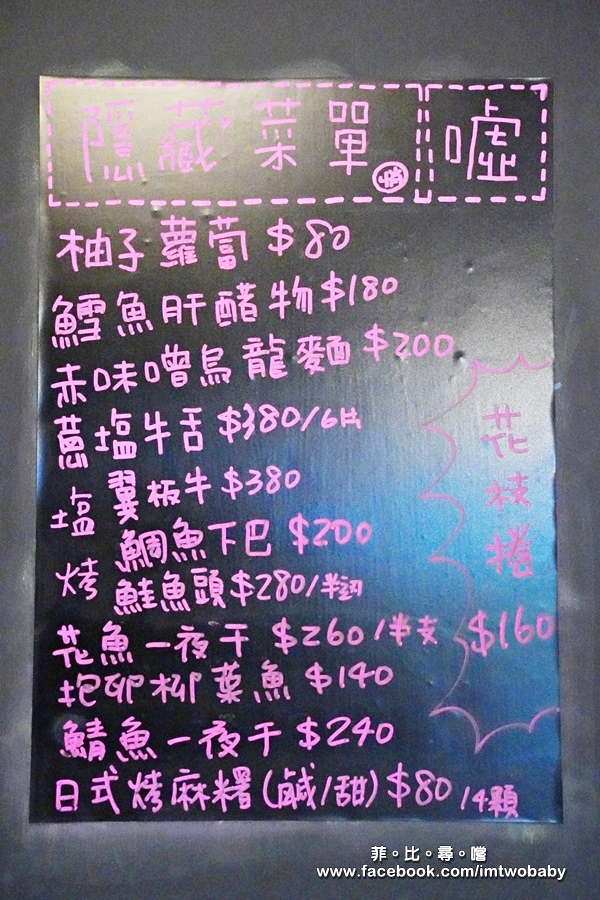 隱藏菜單 噓
柚子蘿蔔 $80
鱈魚肝醋物 $180
赤味噌烏龍麵 $200
蔥塩牛舌 $380/6片
塩烤
翼板牛 $380
鯛魚下巴 $200
鮭魚頭 $280/半切
花魚一夜干 $260/半支
抱卵柳葉魚 $140
鯖魚一夜干 $240
日式烤麻糬(鹹/甜) $80/4顆
花枝捲
$160
菲。比。尋。嚐
www.facebook.com/imtwobaby